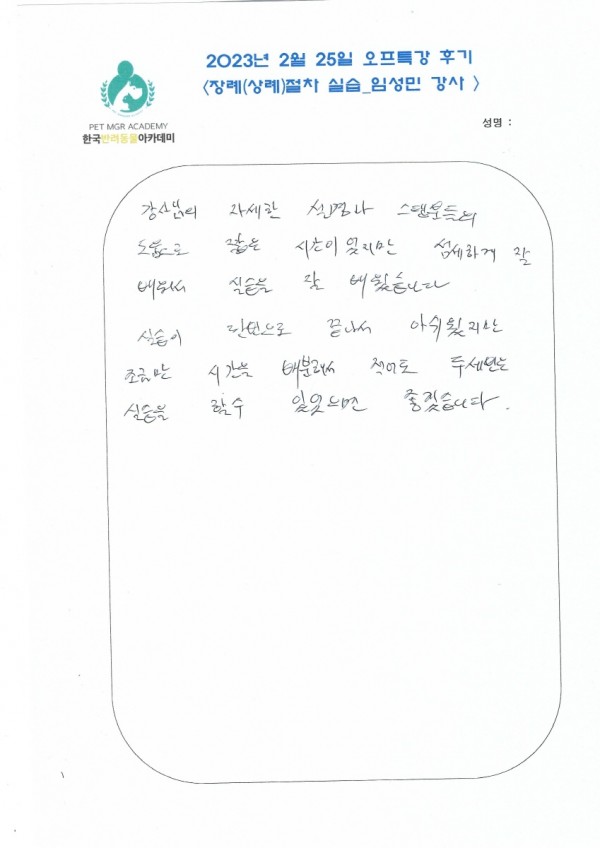 2023년 2월 25일 오프특강 후기
<장례(상례)절차 실습_임성민 강사 >
PET MGR ACADEMY
한국반려동물아카데미
성명 :
강사님의 자세한 설명과 스탭분들의
도움으로 짧은 시간이였지만 섬세하게 잘
배워서 실습을 잘 배웠습니다
실습이 단번으로 끝나서 아쉬웠지만
조금만 시간을 배분해서 적어도 두세번는
실습을 할수 있었으면 좋겠습니다.